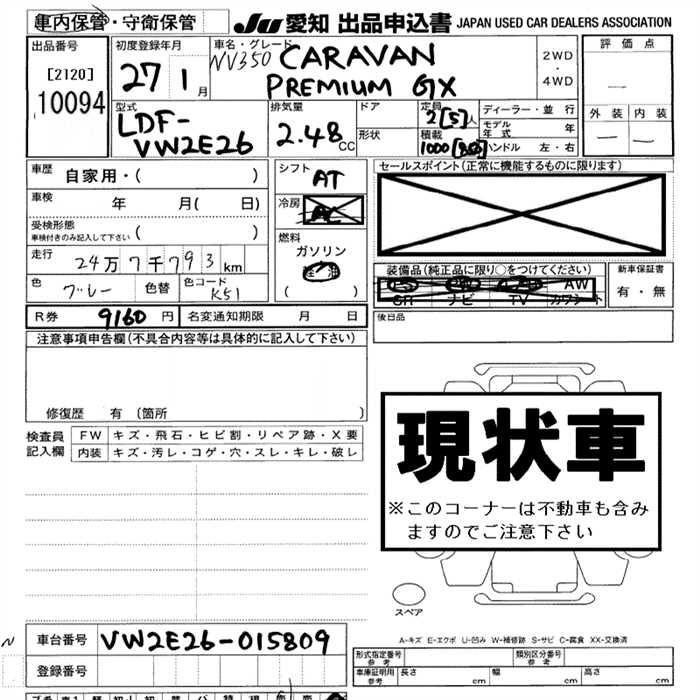 車内保管・守衛保管
JU 愛知 出品申込書 JAPAN USED CAR DEALERS ASSOCIATION
出品番号 初度登録年月 車名・グレード 評価点
[2120] 27 1月 NV350 CARAVAN 2WD・4WD
10094 PREMIUM GX
外装 内装
型式 排気量 ドア 定員 ディーラー・並行
LDF-VW2E26 2.48CC 形状 2[5]人 モデル年式 年
積載 ハンドル 左・右
車歴 自家用・( ) シフト AT セールスポイント(正常に機能するものに限ります)
車検 年 月( 日) 冷房 AC
受検形態 ( )
車検付きのみ記入して下さい
燃料 ガソリン
走行 24万7千793km ( )
装備品(純正品に限り○をつけてください) 新車保証書
AW
SR ナビ TV カワシート 有・無
色 グレー 色替 色コード K51
R券 9160円 名変通知期限 月 日 後日品
注意事項申告欄(不具合内容等は具体的に記入して下さい)
修復歴 有 〔箇所 〕
検査員 FW キズ・飛石・ヒビ割・リペア跡・X要
記入欄 内装 キズ・汚レ・コゲ・穴・スレ・キレ・破レ
現状車
※このコーナーは不動車も含み
ますのでご注意下さい
スペア
A-キズ E-エクボ U-凹み W-補修跡 S-サビ C-腐食 XX-交換済
N 車台番号 VW2E26-015809
登録番号
形式指定番号 参考 類別区分番号 参考
車庫証明用 参考 長さ cm 幅 cm 高さ cm